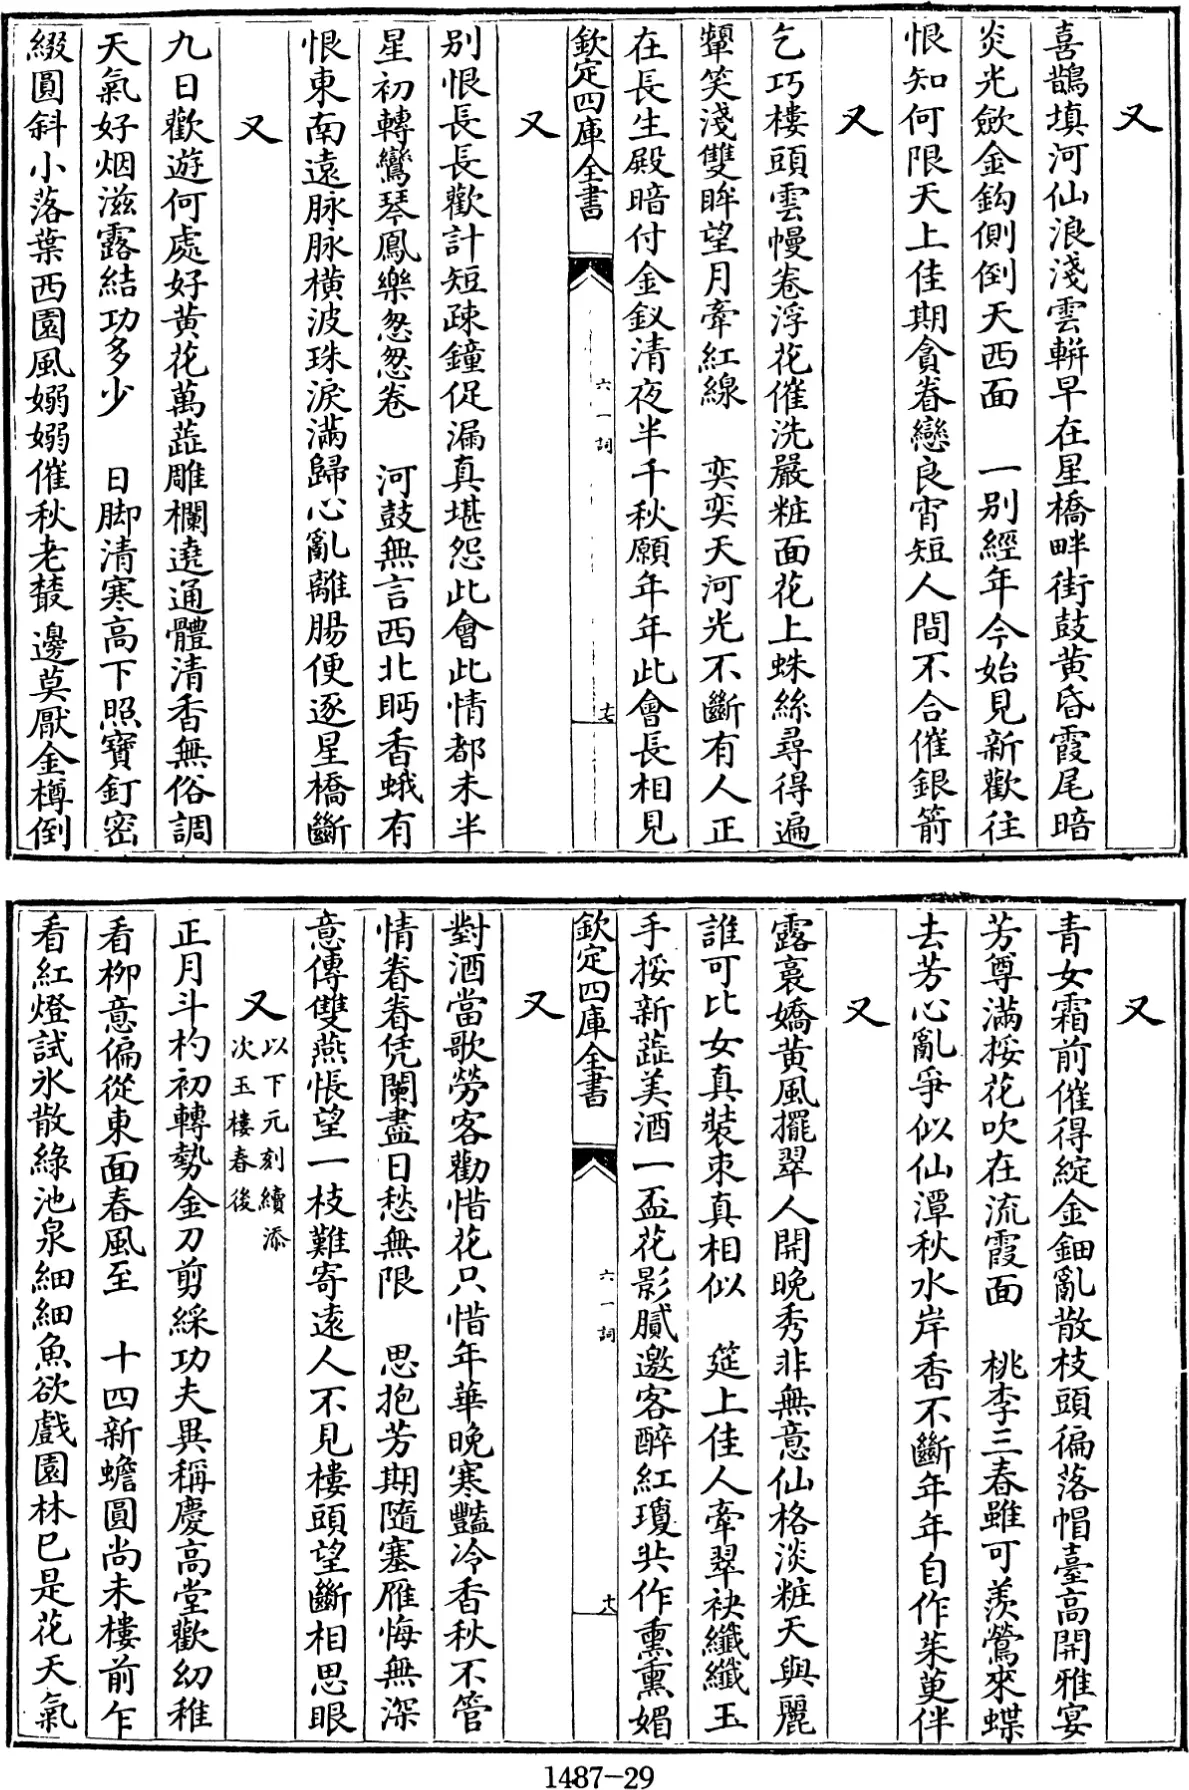 又
喜鵲填河仙浪淺雲軿早在星橋畔街鼓黄昏霞尾暗
炎光歛金鈎側倒天西面　一别經年今始見新歡往
恨知何限天上佳期貪眷戀良宵短人間不合催銀箭
又
乞巧樓頭雲幔卷浮花催洗嚴粧面花上蛛絲尋得遍
顰笑淺雙眸望月牽紅線　奕奕天河光不斷有人正
在長生殿暗付金釵清夜半千秋願年年此會長相見
欽定四庫全書
六一詞
十七
又
别恨長長歡計短疎鐘促漏真堪怨此會此情都未半
星初轉鸞琴鳳樂怱怱卷　河鼓無言西北眄香蛾有
恨東南遠脉脉横波珠淚滿歸心亂離腸便逐星橋斷
又
九日歡遊何處好黄花萬蕋雕欄遶通體清香無俗調
天氣好烟滋露結功多少　日脚清寒高下照寶釘密
綴圓斜小落葉西園風嫋嫋催秋老藂邊莫厭金樽倒
又
青女霜前催得綻金鈿亂散枝頭徧落帽臺高開雅宴
芳尊滿挼花吹在流霞面　桃李三春雖可羡鶯來蝶
去芳心亂爭似仙潭秋水岸香不斷年年自作茱萸伴
又
露裛嬌黄風擺翠人開晚秀非無意仙格淡粧天與麗
誰可比女真裝束真相似　筵上佳人牽翠袂纖纖玉
手挼新蕋美酒一盃花影膩邀客醉紅瓊共作熏熏媚
欽定四庫全書
六一詞
十八
又
對酒當歌勞客勸惜花只惜年華晚寒豔冷香秋不管
情眷眷凭闌盡日愁無限　思抱芳期隨塞雁悔無深
意傳雙燕悵望一枝難寄遠人不見樓頭望斷相思眼
又
以下元刻續添
次玉樓春後
正月斗杓初轉勢金刀剪綵功夫異稱慶高堂歡幼稚
看柳意偏從東面春風至　十四新蟾圓尚未樓前乍
看紅燈試氷散綠池泉細細魚欲戲園林已是花天氣
1487-29